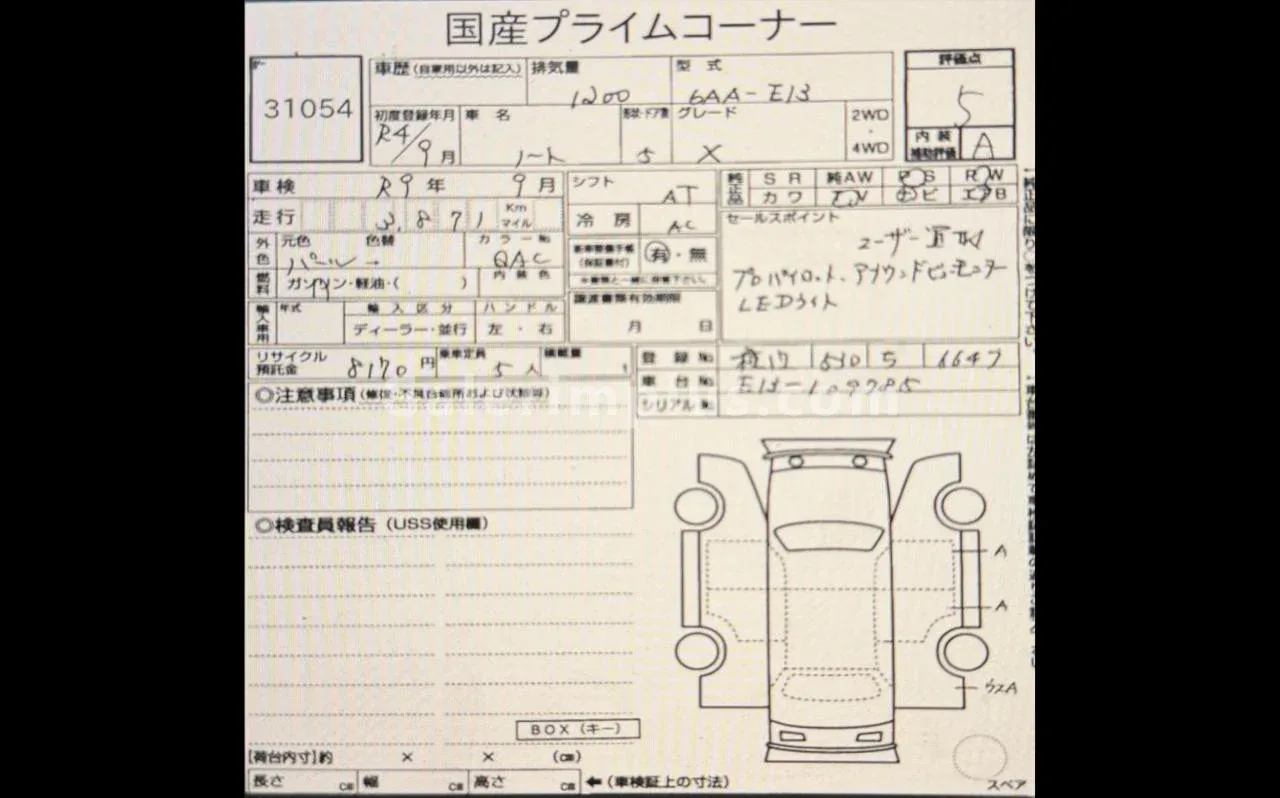 国産プライムコーナー
31054
車歴(自家用以外は記入) 排気量 1200 型式 6AA-E13
評価点 5
初度登録年月 R4/9月 車名 ノート 形状・ドア数 5 グレード X 2WD・4WD
内装補助評価 A
車検 R9年 9月 シフト AT
純正品 SR 純AW PS RW
カワ TV ナビ エアB
走行 3,871 Km マイル 冷房 AC
セールスポイント
ユーザー買取
プロパイロット、アラウンドビューモニター
LEDライト
外色 元色 パール→ 色替 カラーNo QAC
新車整備手帳(保証書付) 有・無
※書類と一緒に保管下さい。
燃料 ガソリン・軽油・( ) 内装色
譲渡書類有効期限
月 日
輸入車用 年式 輸入区分 ハンドル
ディーラー・並行 左・右
リサイクル預託金 8170円 乗車定員 5人 積載量 t
登録No 530 5 6647
車台No E13-109785
シリアルNo
◎注意事項
◎検査員報告(USS使用欄)
A
A
BOX(キー)
【荷台内寸】約 × × (cm)
長さ cm 幅 cm 高さ cm ←(車検証上の寸法)
スペア